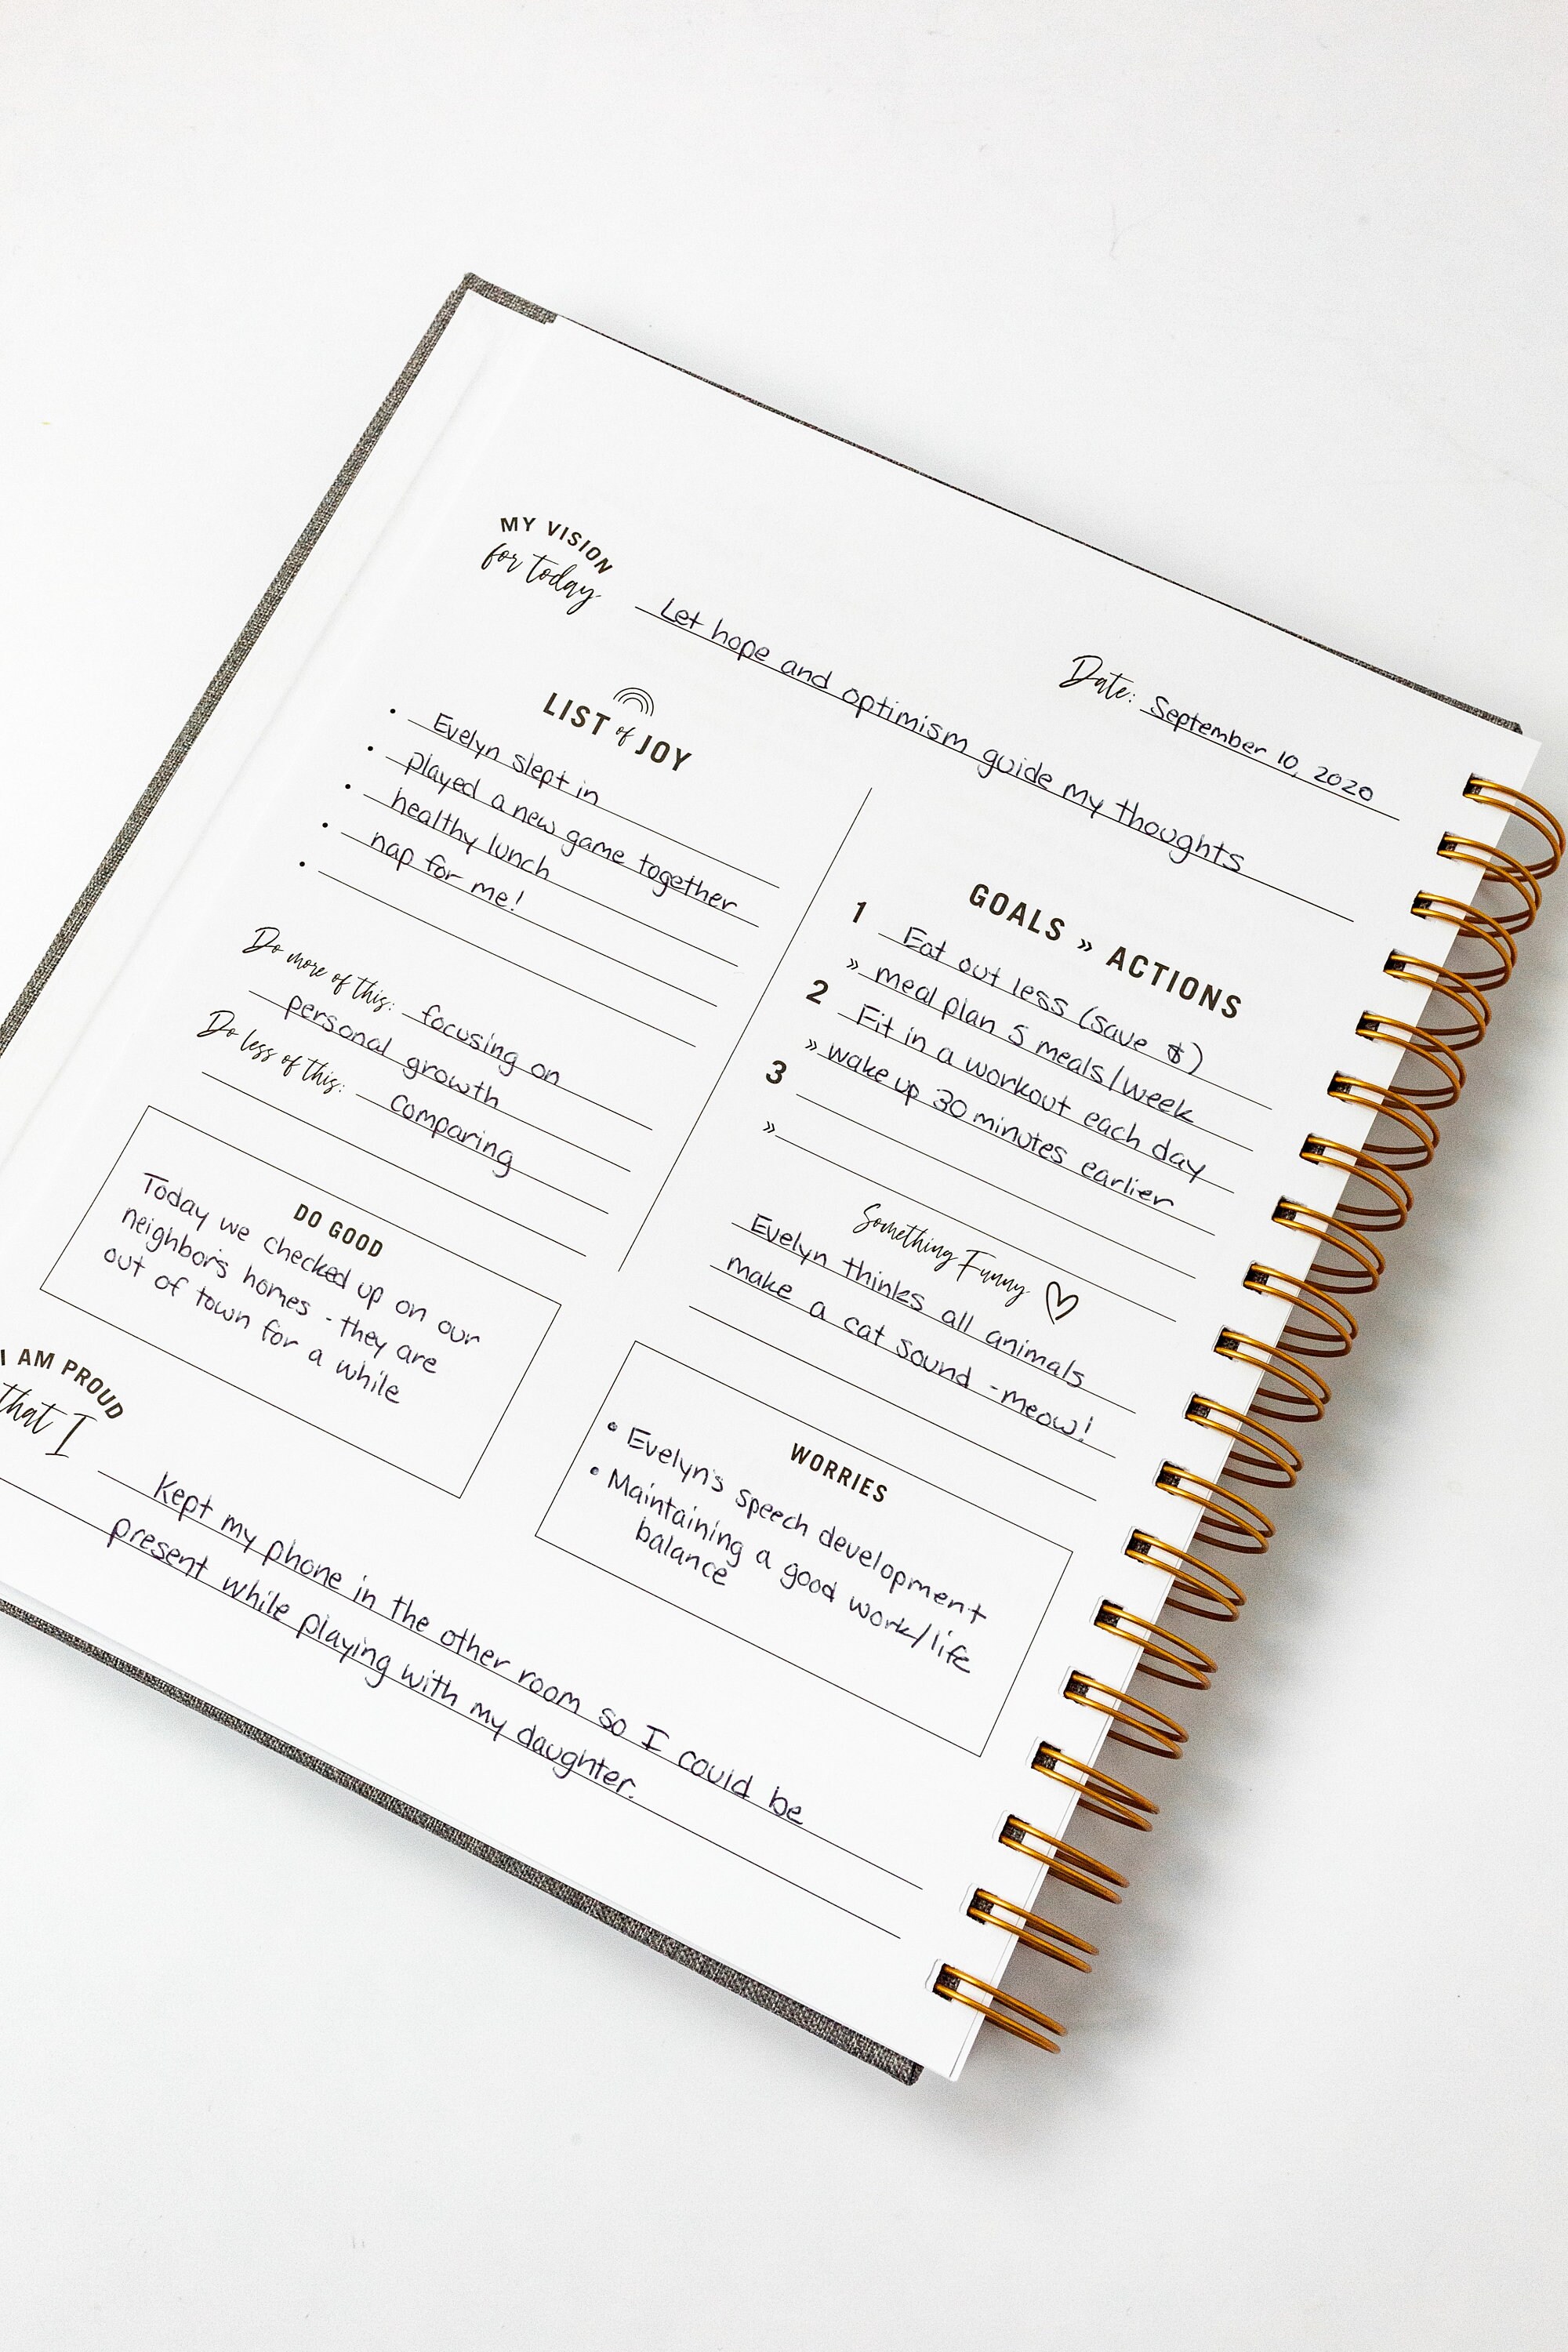 Date: September 10, 2020
MY VISION
for today
Let hope and optimism guide my thoughts
LIST of JOY
• Evelyn slept in
• played a new game together
• healthy lunch
• nap for me!
•
Do more of this: focusing on
personal growth
Do less of this: comparing
GOALS » ACTIONS
1 Eat out less (save $)
» meal plan 5 meals/week
2 Fit in a workout each day
» wake up 30 minutes earlier
3
»
Something Funny
Evelyn thinks all animals
make a cat sound - meow!
DO GOOD
Today we checked up on our
neighbor's homes - they are
out of town for a while
WORRIES
• Evelyn's speech development
• Maintaining a good work/life
balance
I AM PROUD
that I
Kept my phone in the other room so I could be
present while playing with my daughter.